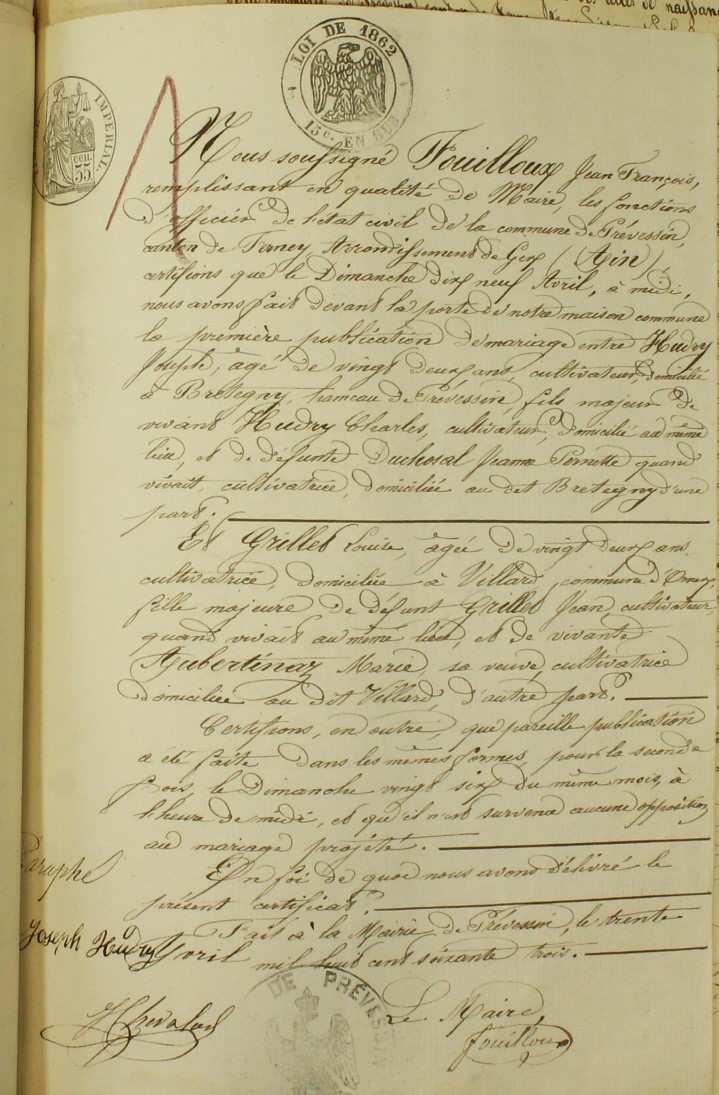 des actes de naissan
LOI DE 1862
15c. EN SUS
IMPERIAL.
CEN.
35
Nous soussigné Fouilloux Jean François,
remplissant en qualité de Maire, les fonctions
d'officier de l'état civil de la commune de Prévessin,
canton de Ferney, Arrondissement de Gex (Ain)
certifions que le Dimanche dix neuf Avril, à midi,
nous avons fait devant la porte de notre maison commune
la première publication de mariage entre Hudry
Joseph, âgé de vingt deux ans, cultivateur, domicilié
à Bretegny, hameau de Prévessin, fils majeur de
vivant Hudry Charles, cultivateur, domicilié au même
lieu, et de défunte Duchosal Jeanne Pernette quand
vivait, cultivatrice, domiciliée au dit Bretegny d'une
part.
Et Grillet Louise, âgée de vingt deux ans
cultivatrice, domiciliée à Villard, commune d'Ornex,
fille majeure de défunt Grillet Jean, cultivateur,
quand vivait au même lieu, et de vivante
Aubertinaz Marie, sa veuve, cultivatrice
domiciliée au dit Villard, d'autre part.
Certifions, en outre, que pareille publication
a été faite dans les mêmes formes, pour la seconde
fois, le Dimanche vingt six du même mois, à
l'heure de midi, et qu'il n'est survenu aucune opposition
au mariage projeté.
Paraphé
En foi de quoi nous avons délivré le
présent certificat.
Fait à la Mairie de Prévessin, le trente
Joseph Hudry
Avril mil huit cent soixante trois.
DE PRÉVESSIN
Le Maire,
Fouilloux